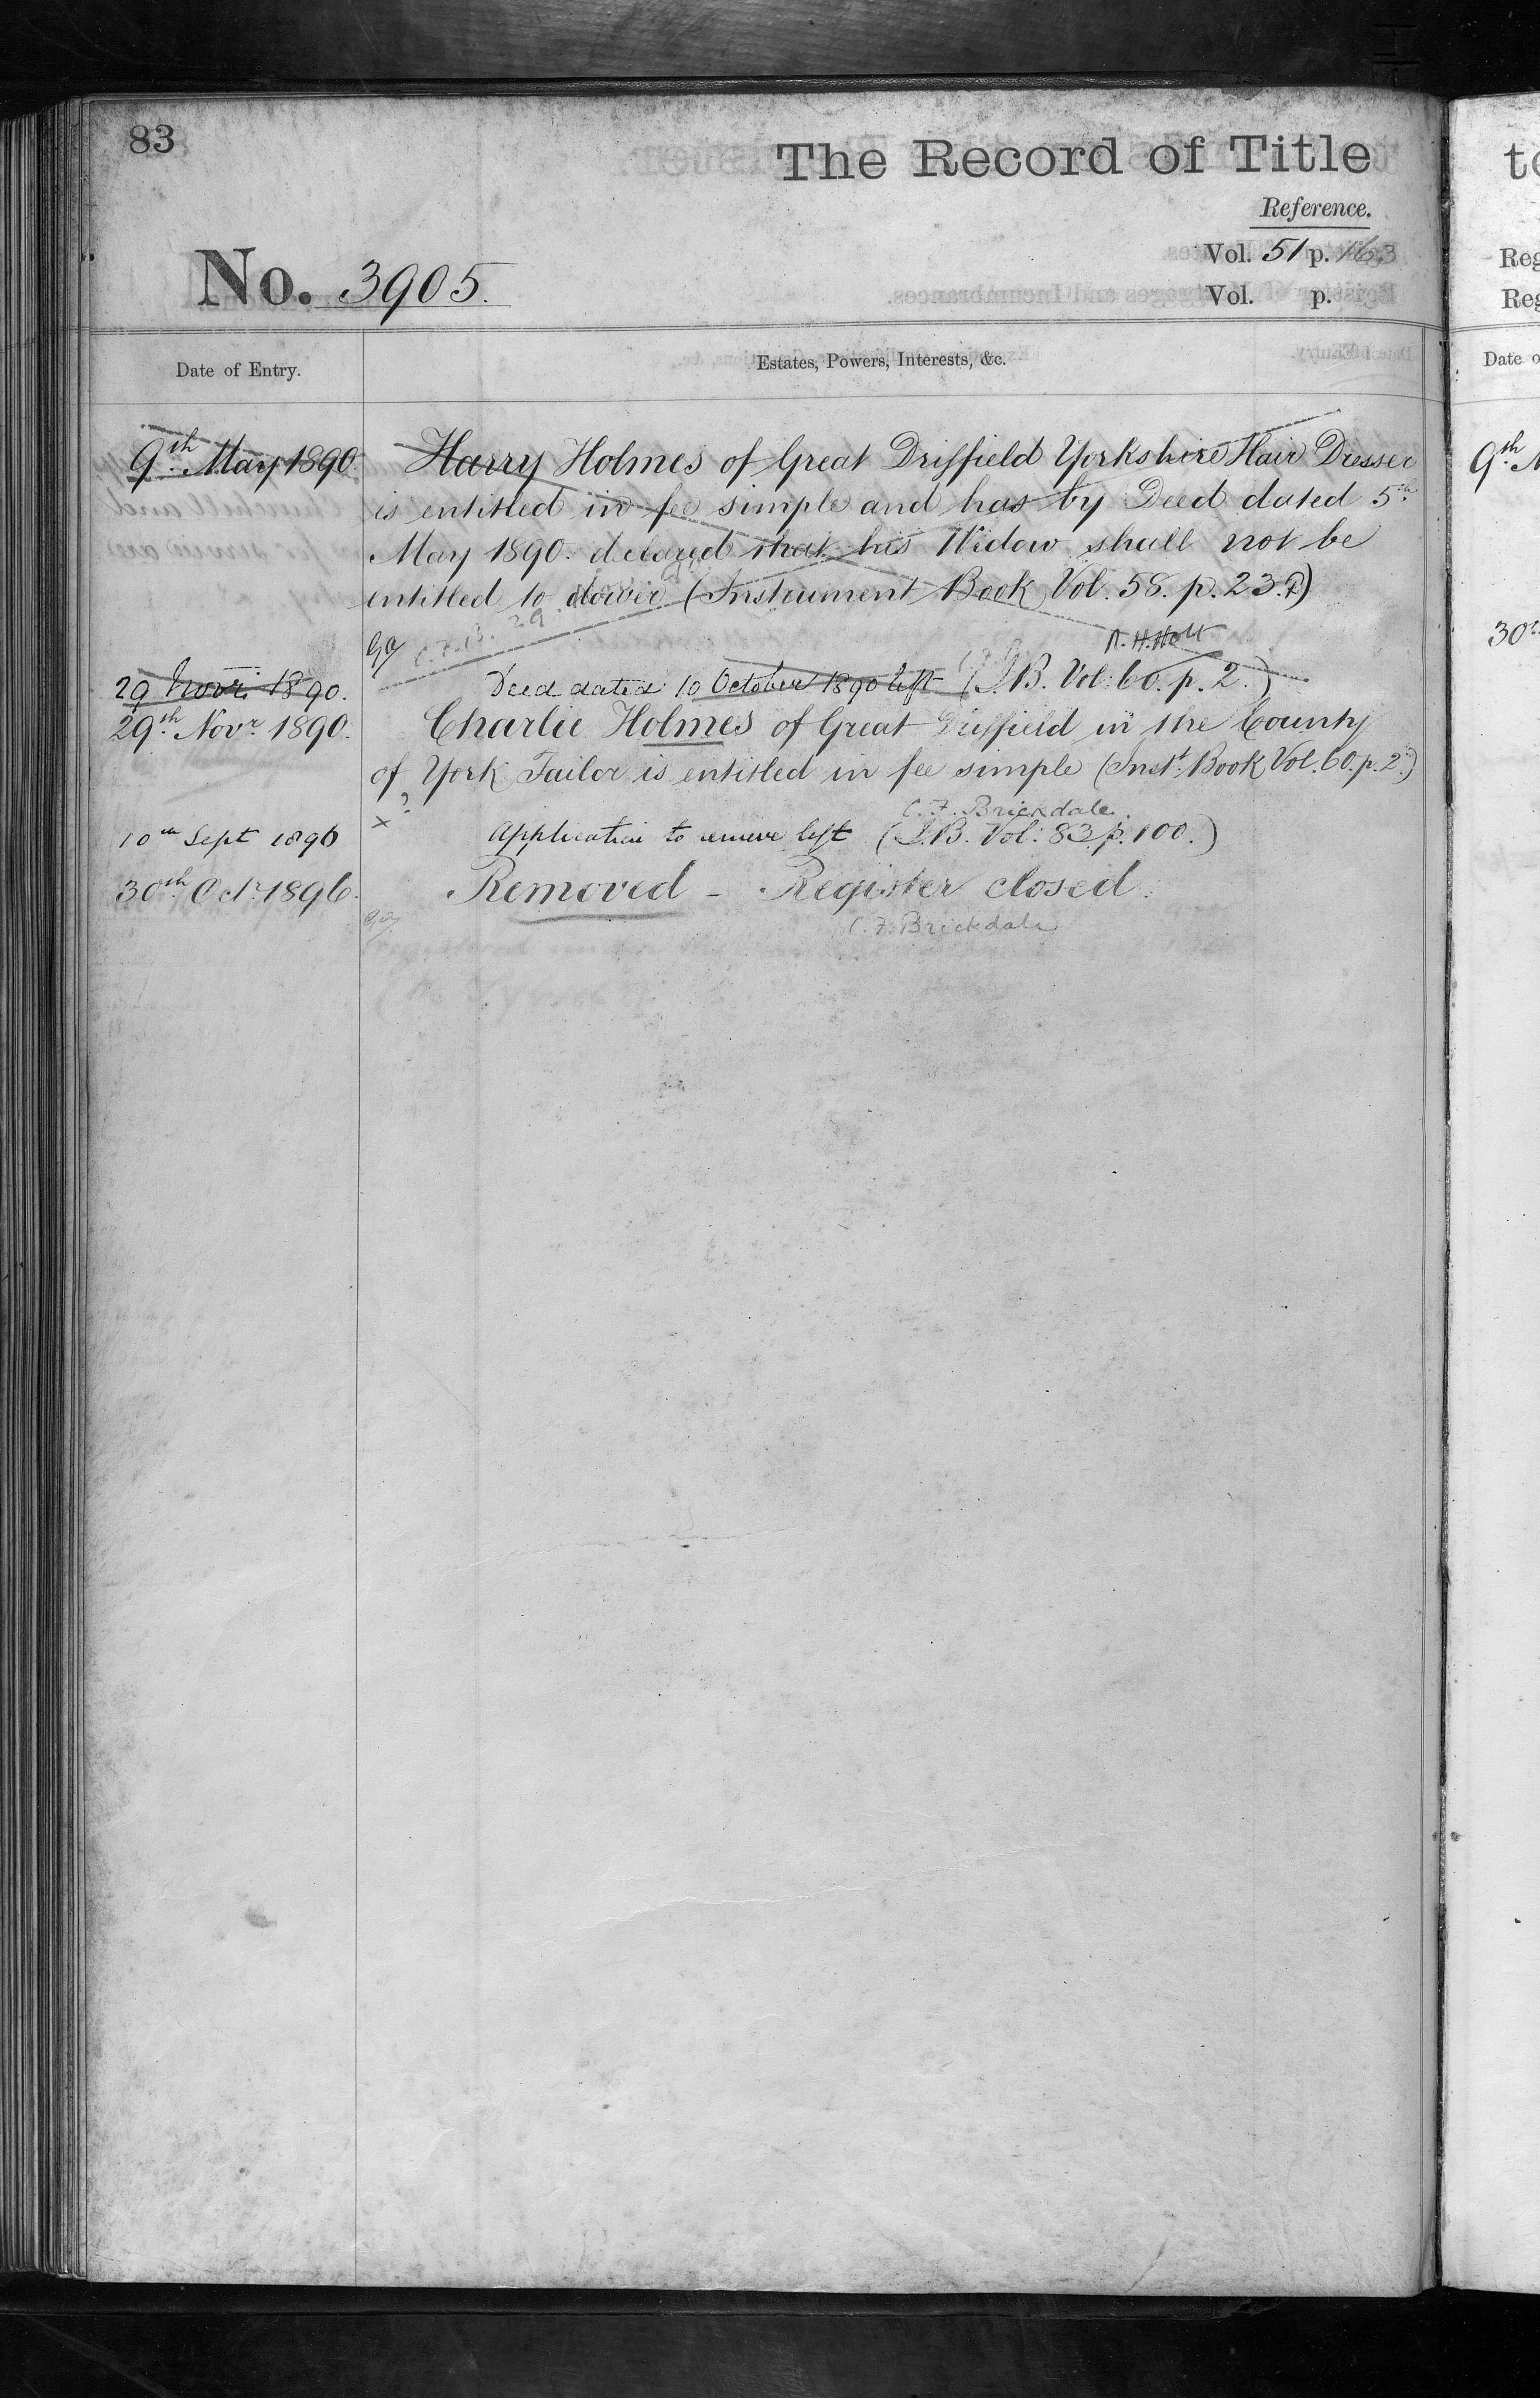 83
The Record of Title
Reference.
Vol. 51 p. 163
No. 3905.
Vol. p.
Date of Entry.
Estates, Powers, Interests, &c.
9th May 1890. Harry Holmes of Great Driffield Yorkshire Hair Dresser
is entitled in fee simple and has by Deed dated 5th
May 1890. declared that his Widow shall not be
entitled to dower (Instrument Book Vol. 58. p. 23.)
R. H. Holt
29 Novr. 1890. Deed dated 10 October 1890 left (I.B. Vol: 60. p. 2.)
29th Novr. 1890. Charlie Holmes of Great Driffield in the County
of York Tailor is entitled in fee simple (Inst. Book Vol. 60. p. 2.)
C. F. Brickdale.
10th Sept 1896 Application to remove left (I.B. Vol: 83. p. 100.)
30th Oct. 1896. Removed - Register closed.
C. F. Brickdale
to
Reg
Reg
Date o
9th M
30